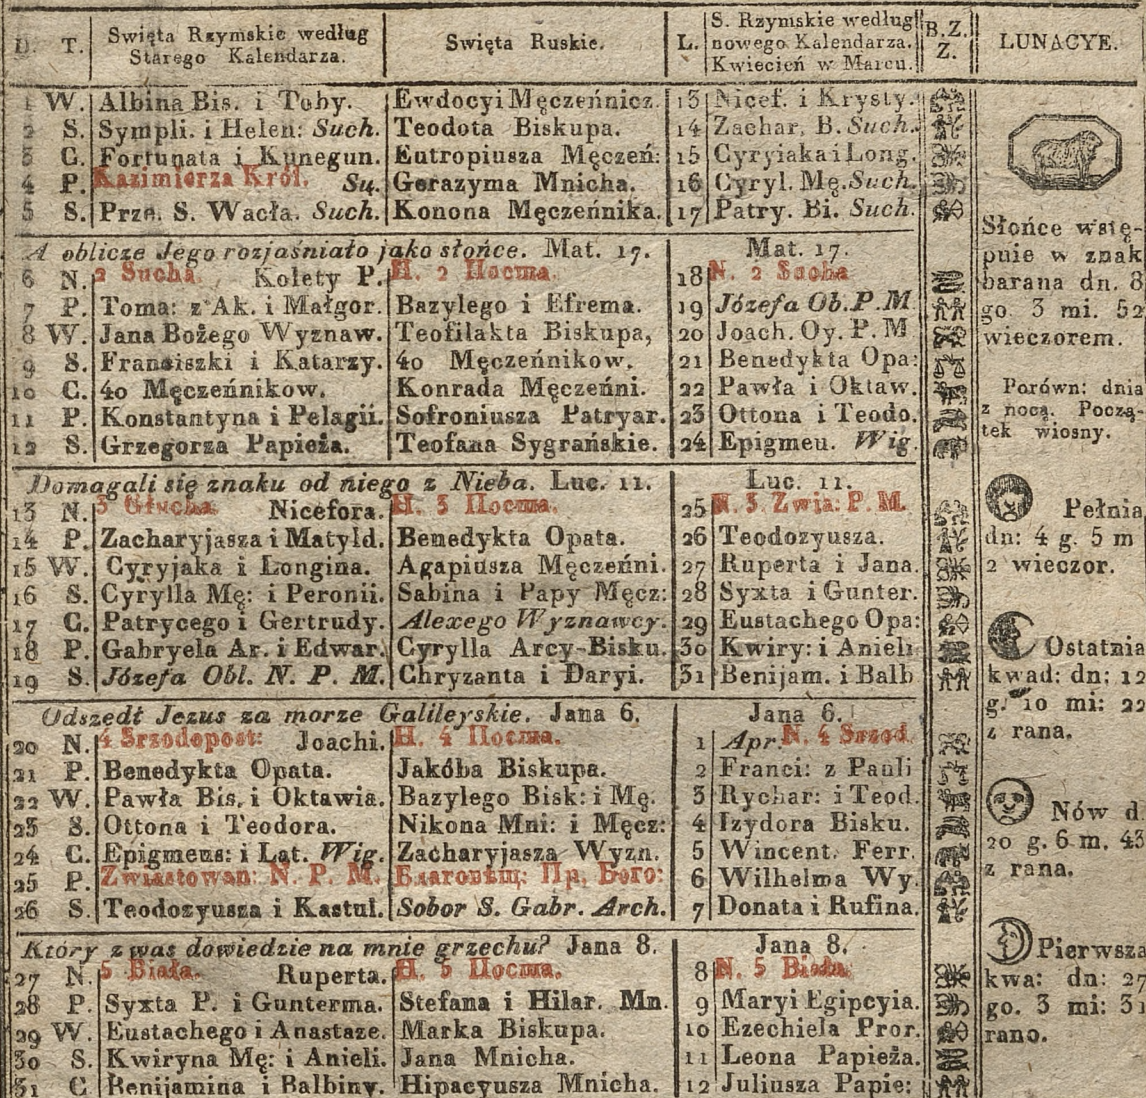 D. T. Swięta Rzymskie według Starego Kalendarza. Swięta Ruskie. L. S. Rzymskie według nowego Kalendarza. Kwiecień w Marcu. B.Z. Z. LUNACYE.
1 W. Albina Bis. i Toby. Ewdocyi Męczeńnicz. 13 Nicef. i Krysty.
2 S. Sympli. i Helen: Such. Teodota Biskupa. 14 Zachar, B. Such.
3 C. Fortunata i Kunegun. Eutropiusza Męczeń: 15 Cyryiaka i Long.
4 P. Kazimierza Król. Su. Gerazyma Mnicha. 16 Cyryl. Mę. Such.
5 S. Prze. S. Wacła. Such. Konona Męczeńnika. 17 Patry. Bi. Such.
A oblicze Jego rozjaśniało jako słońce. Mat. 17. Mat. 17.
6 N. 2 Sucha. Kolety P. Н. 2 Посma. 18 N. 2 Sucha
7 P. Toma: z Ak. i Małgor. Bazylego i Efrema. 19 Józefa Ob. P. M
8 W. Jana Bożego Wyznaw. Teofilakta Biskupa, 20 Joach. Oy. P. M
9 S. Franciszki i Katarzy. 40 Męczeńnikow. 21 Benedykta Opa:
10 C. 40 Męczeńnikow. Konrada Męczeńni. 22 Pawła i Oktaw.
11 P. Konstantyna i Pelagii. Sofroniusza Patryar. 23 Ottona i Teodo.
12 S. Grzegorza Papieża. Teofana Sygrańskie. 24 Epigmeu. Wig.
Domagali się znaku od niego z Nieba. Luc. 11. Luc. 11.
13 N. 3 Głucha. Nicefora. Н. 3 Посma. 25 N. 3 Zwia: P. M.
14 P. Zacharyjasza i Matyld. Benedykta Opata. 26 Teodozyusza.
15 W. Cyryjaka i Longina. Agapiusza Męczeńni. 27 Ruperta i Jana.
16 S. Cyrylla Mę: i Peronii. Sabina i Papy Męcz: 28 Syxta i Gunter.
17 C. Patrycego i Gertrudy. Alexego Wyznawcy. 29 Eustachego Opa:
18 P. Gabryela Ar. i Edwar. Cyrylla Arcy-Bisku. 30 Kwiry: i Anieli
19 S. Józefa Obl. N. P. M. Chryzanta i Daryi. 31 Benijam. i Balb
Odszedł Jezus za morze Galileyskie. Jana 6. Jana 6.
20 N. 4 Srzodopost: Joachi. Н. 4 Посma. 1 Apr. N. 4 Srzod.
21 P. Benedykta Opata. Jakóba Biskupa. 2 Franci: z Pauli
22 W. Pawła Bis. i Oktawia. Bazylego Bisk: i Mę. 3 Rychar: i Teod.
23 S. Ottona i Teodora. Nikona Mni: i Męcz: 4 Izydora Bisku.
24 C. Epigmeus: i Lat. Wig. Zacharyjasza Wyzn. 5 Wincent. Ferr.
25 P. Zwiastowan: N. P. M. Благовѣщ: Пр. Бого: 6 Wilhelma Wy.
26 S. Teodozyusza i Kastul. Sobor S. Gabr. Arch. 7 Donata i Rufina.
Który z was dowiedzie na mnie grzechu? Jana 8. Jana 8.
27 N. 5 Biała. Ruperta. Н. 5 Посma. 8 N. 5 Biała
28 P. Syxta P. i Gunterma. Stefana i Hilar. Mn. 9 Maryi Egipcyia.
29 W. Eustachego i Anastaze. Marka Biskupa. 10 Ezechiela Pror.
30 S. Kwiryna Mę: i Anieli. Jana Mnicha. 11 Leona Papieża.
31 C Benijamina i Balbiny. Hipacyusza Mnicha. 12 Juliusza Papie:
Słońce wstę-
puie w znak
barana dn. 8
go. 3 mi. 52
wieczorem.
Porówn: dnia
z nocą. Począ-
tek wiosny.
Pełnia
dn: 4 g. 5 m
2 wieczor.
Ostatnia
kwad: dn: 12
g. 10 mi: 22
z rana.
Nów d
20 g. 6 m. 43
z rana.
Pierwsza
kwa: dn: 27
go. 3 mi: 31
rano.